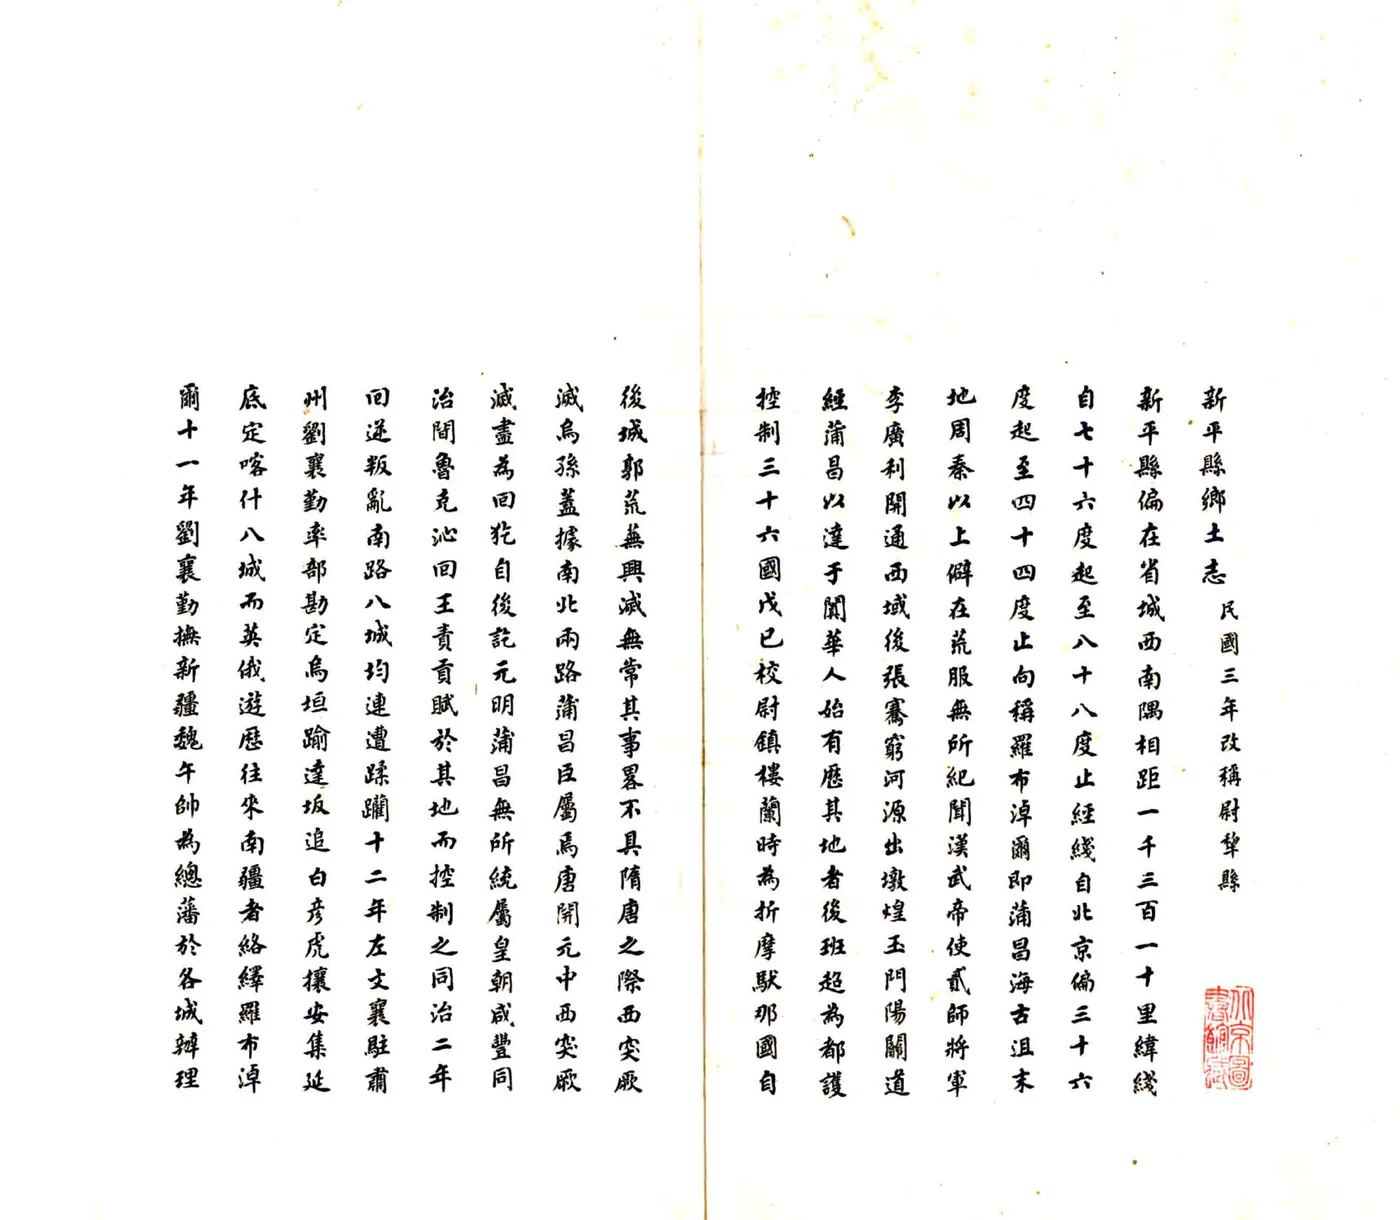 新平縣鄉土志 民國三年改稱尉犂縣
新平縣偏在省城西南隅相距一千三百一十里緯綫
自七十六度起至八十八度止經綫自北京偏三十六
度起至四十四度止向稱羅布淖爾即蒲昌海古沮末
地周秦以上僻在荒服無所紀聞漢武帝使貳師將軍
李廣利開通西域後張騫窮河源出墩煌玉門陽關道
經蒲昌以達于闐華人始有歷其地者後班超為都護
控制三十六國戊已校尉鎮樓蘭時為折摩馱那國自
後城郭荒蕪興滅無常其事畧不具隋唐之際西突厥
滅烏孫蓋據南北兩路蒲昌臣屬焉唐開元中西突厥
滅盡為回犵自後訖元明蒲昌無所統屬皇朝咸豐同
治間魯克沁回王責貢賦於其地而控制之同治二年
回逆叛亂南路八城均連遭蹂躪十二年左文襄駐肅
州劉襄勤率部勘定烏垣踰達坂追白彥虎攘安集延
底定喀什八城而英俄遊歷往來南疆者絡繹羅布淖
爾十一年劉襄勤撫新疆魏午帥為總藩於各城辦理
北京圖書館藏